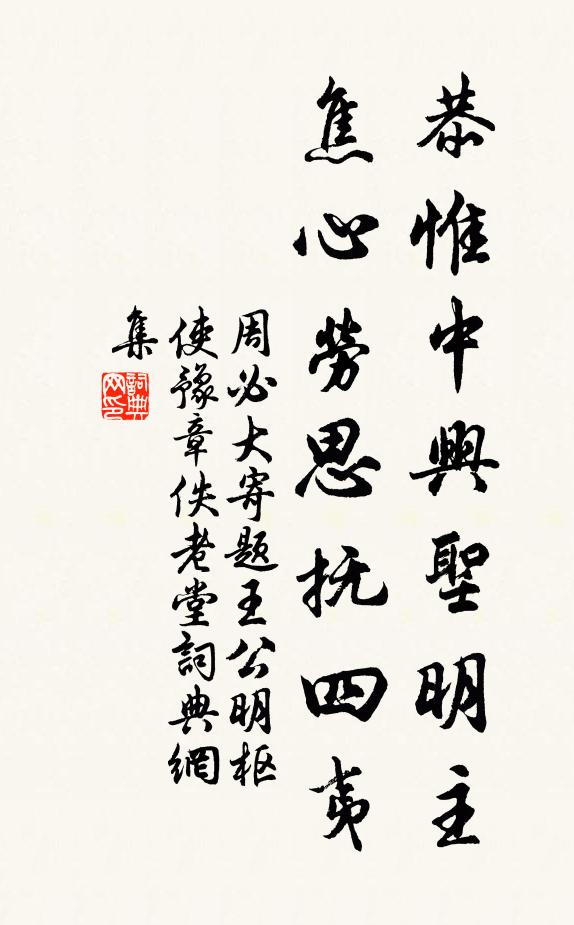 恭惟中興聖明主
焦心勞思抚四夷
周必大寄题王公明枢
使豫章佚老堂詞典網
集
詞典
网印